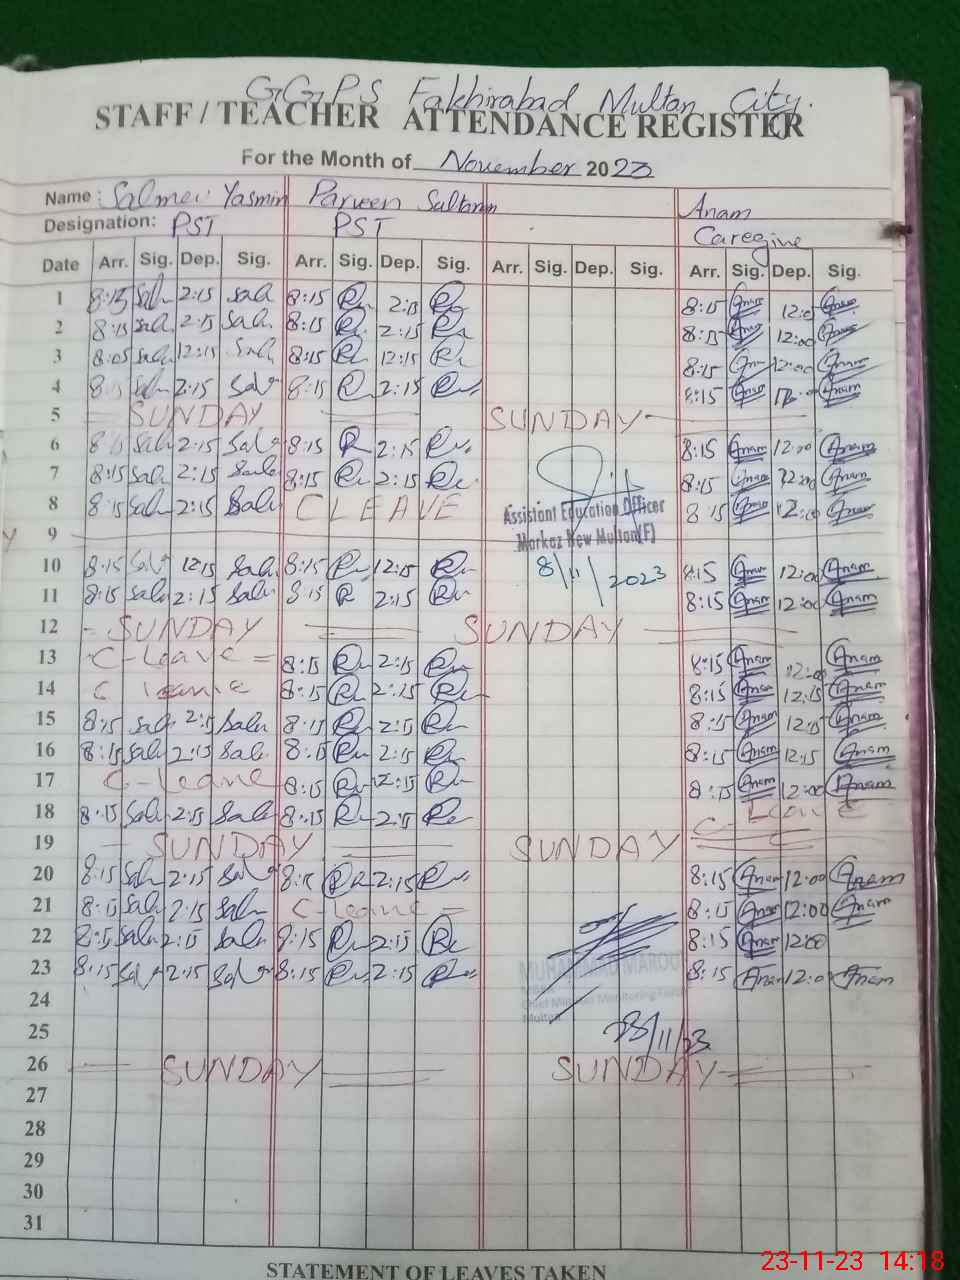 GGPS Fakhirabad Multan City.
STAFF / TEACHER ATTENDANCE REGISTER
For the Month of November 2023
Name : Yasmin Parveen Sultana Anam
Designation: PST PST Caregine
Date Arr. Sig. Dep. Sig. Arr. Sig. Dep. Sig. Arr. Sig. Dep. Sig. Arr. Sig. Dep. Sig.
1 8:15 Sal 2:15 Sal 8:15 2:15 8:15 Anam 12:0 Anam
2 8:15 Sal 2:15 Sal 8:15 2:15 8:15 12:00
3 8:05 Sal 12:15 Sal 8:15 12:15 8:15 12:00
4 Sal 2:15 Sal 8:15 2:15 8:15 Anam Anam
5 SUNDAY SUNDAY
6 Sal 2:15 Sal 8:15 2:15 8:15 Anam 12:00 Anam
7 8:15 Sal 2:15 Sale 8:15 2:15 8:15 Anam 12:00 Anam
8 8:15 Sal 2:15 Sal C LEAVE 8:15 Anam 12:00 Anam
Assistant Education Officer
Markaz New Multan(F)
9
8/11/2023
10 8:15 Sal 12:15 Sal 8:15 12:15 8:15 Anam 12:00 Anam
11 8:15 Sal 2:15 Sal 8:15 2:15 8:15 Anam 12:00 Anam
12 SUNDAY SUNDAY
13 C-Leave 8:15 2:15 8:15 Anam 12:00 Anam
14 C leave 8:15 2:15 8:15 Anam 12:15 Anam
15 8:15 Sal 2:15 Sal 8:15 2:15 8:15 Anam 12:15 Anam
16 8:15 Sal 2:15 Sal 8:15 2:15 8:15 Anam 12:15 Anam
17 C-leave 8:15 12:15 8:15 Anam 12:00 Anam
18 8:15 Sal 2:15 Sal 8:15 2:15 C-Leave
19 SUNDAY SUNDAY
20 8:15 Sal 2:15 Sal 8:15 2:15 8:15 Anam 12:00 Anam
21 8:15 Sal 2:15 Sal C-leave 8:15 Anam 12:00 Anam
22 8:15 Sal 2:15 Sal 8:15 2:15 8:15 Anam 12:00
23 8:15 Sal 2:15 Sal 8:15 2:15 8:15 Anam 12:0 Anam
MUHAMMAD MAROOF
24
Chief Minister Monitoring Force
Multan
25
/11/23
26 SUNDAY SUNDAY
27
28
29
30
31
STATEMENT OF LEAVES TAKEN
23-11-23 14:18